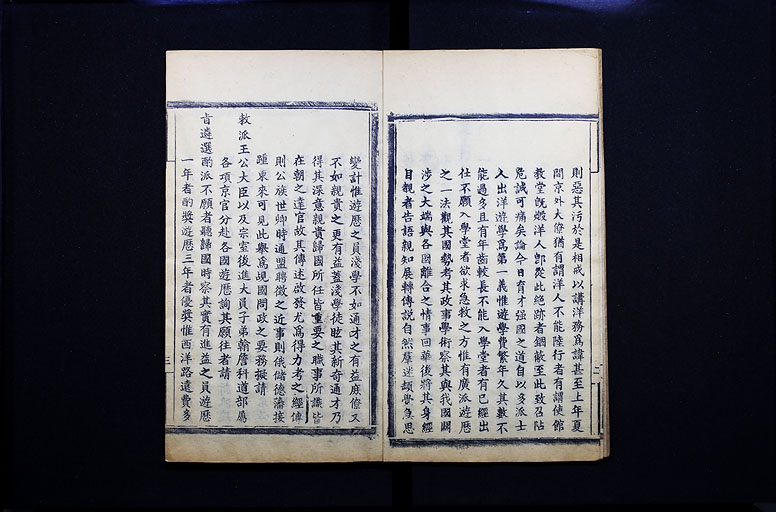 則惡其污於是相戒以講洋務為諱甚至上年夏
間京外大僚猶有謂洋人不能陸行者有謂使館
教堂旣燬洋人卽從此絶跡者錮蔽至此致召阽
危誠可痛矣論今日育才强國之道自以多派士
人出洋遊學為第一義惟遊學費繁年久其數不
能過多且有年齒較長不能入學堂者有已經出
仕不願入學堂者欲求急救之方惟有廣派遊歷
之一法觀其國勢考其政事學術察其與我國關
涉之大端與各國離合之情事回華後將其身經
目覩者告語親知展轉傳説自然羣迷頓覺急思
變計惟遊歷之員淺學不如通才之有益庶僚又
不如親貴之更有益蓋淺學徒眩其新奇通才乃
得其深意親貴歸國所任皆重要之職事所識皆
在朝之達官故其傳述啟發尤為得力考之經傳
則公族世卿時通盟聘徵之近事則俄儲德藩接
踵東來可見此舉為覘國問政之要務擬請
敕派王公大臣以及宗室後進大員子弟翰詹科道部屬
各項京官分赴各國遊歷詢其願往者請
旨遴選酌派不願者聽歸國時察其實有進益之員遊歷
一年者酌獎遊歷三年者優獎惟西洋路遠費多
二
三